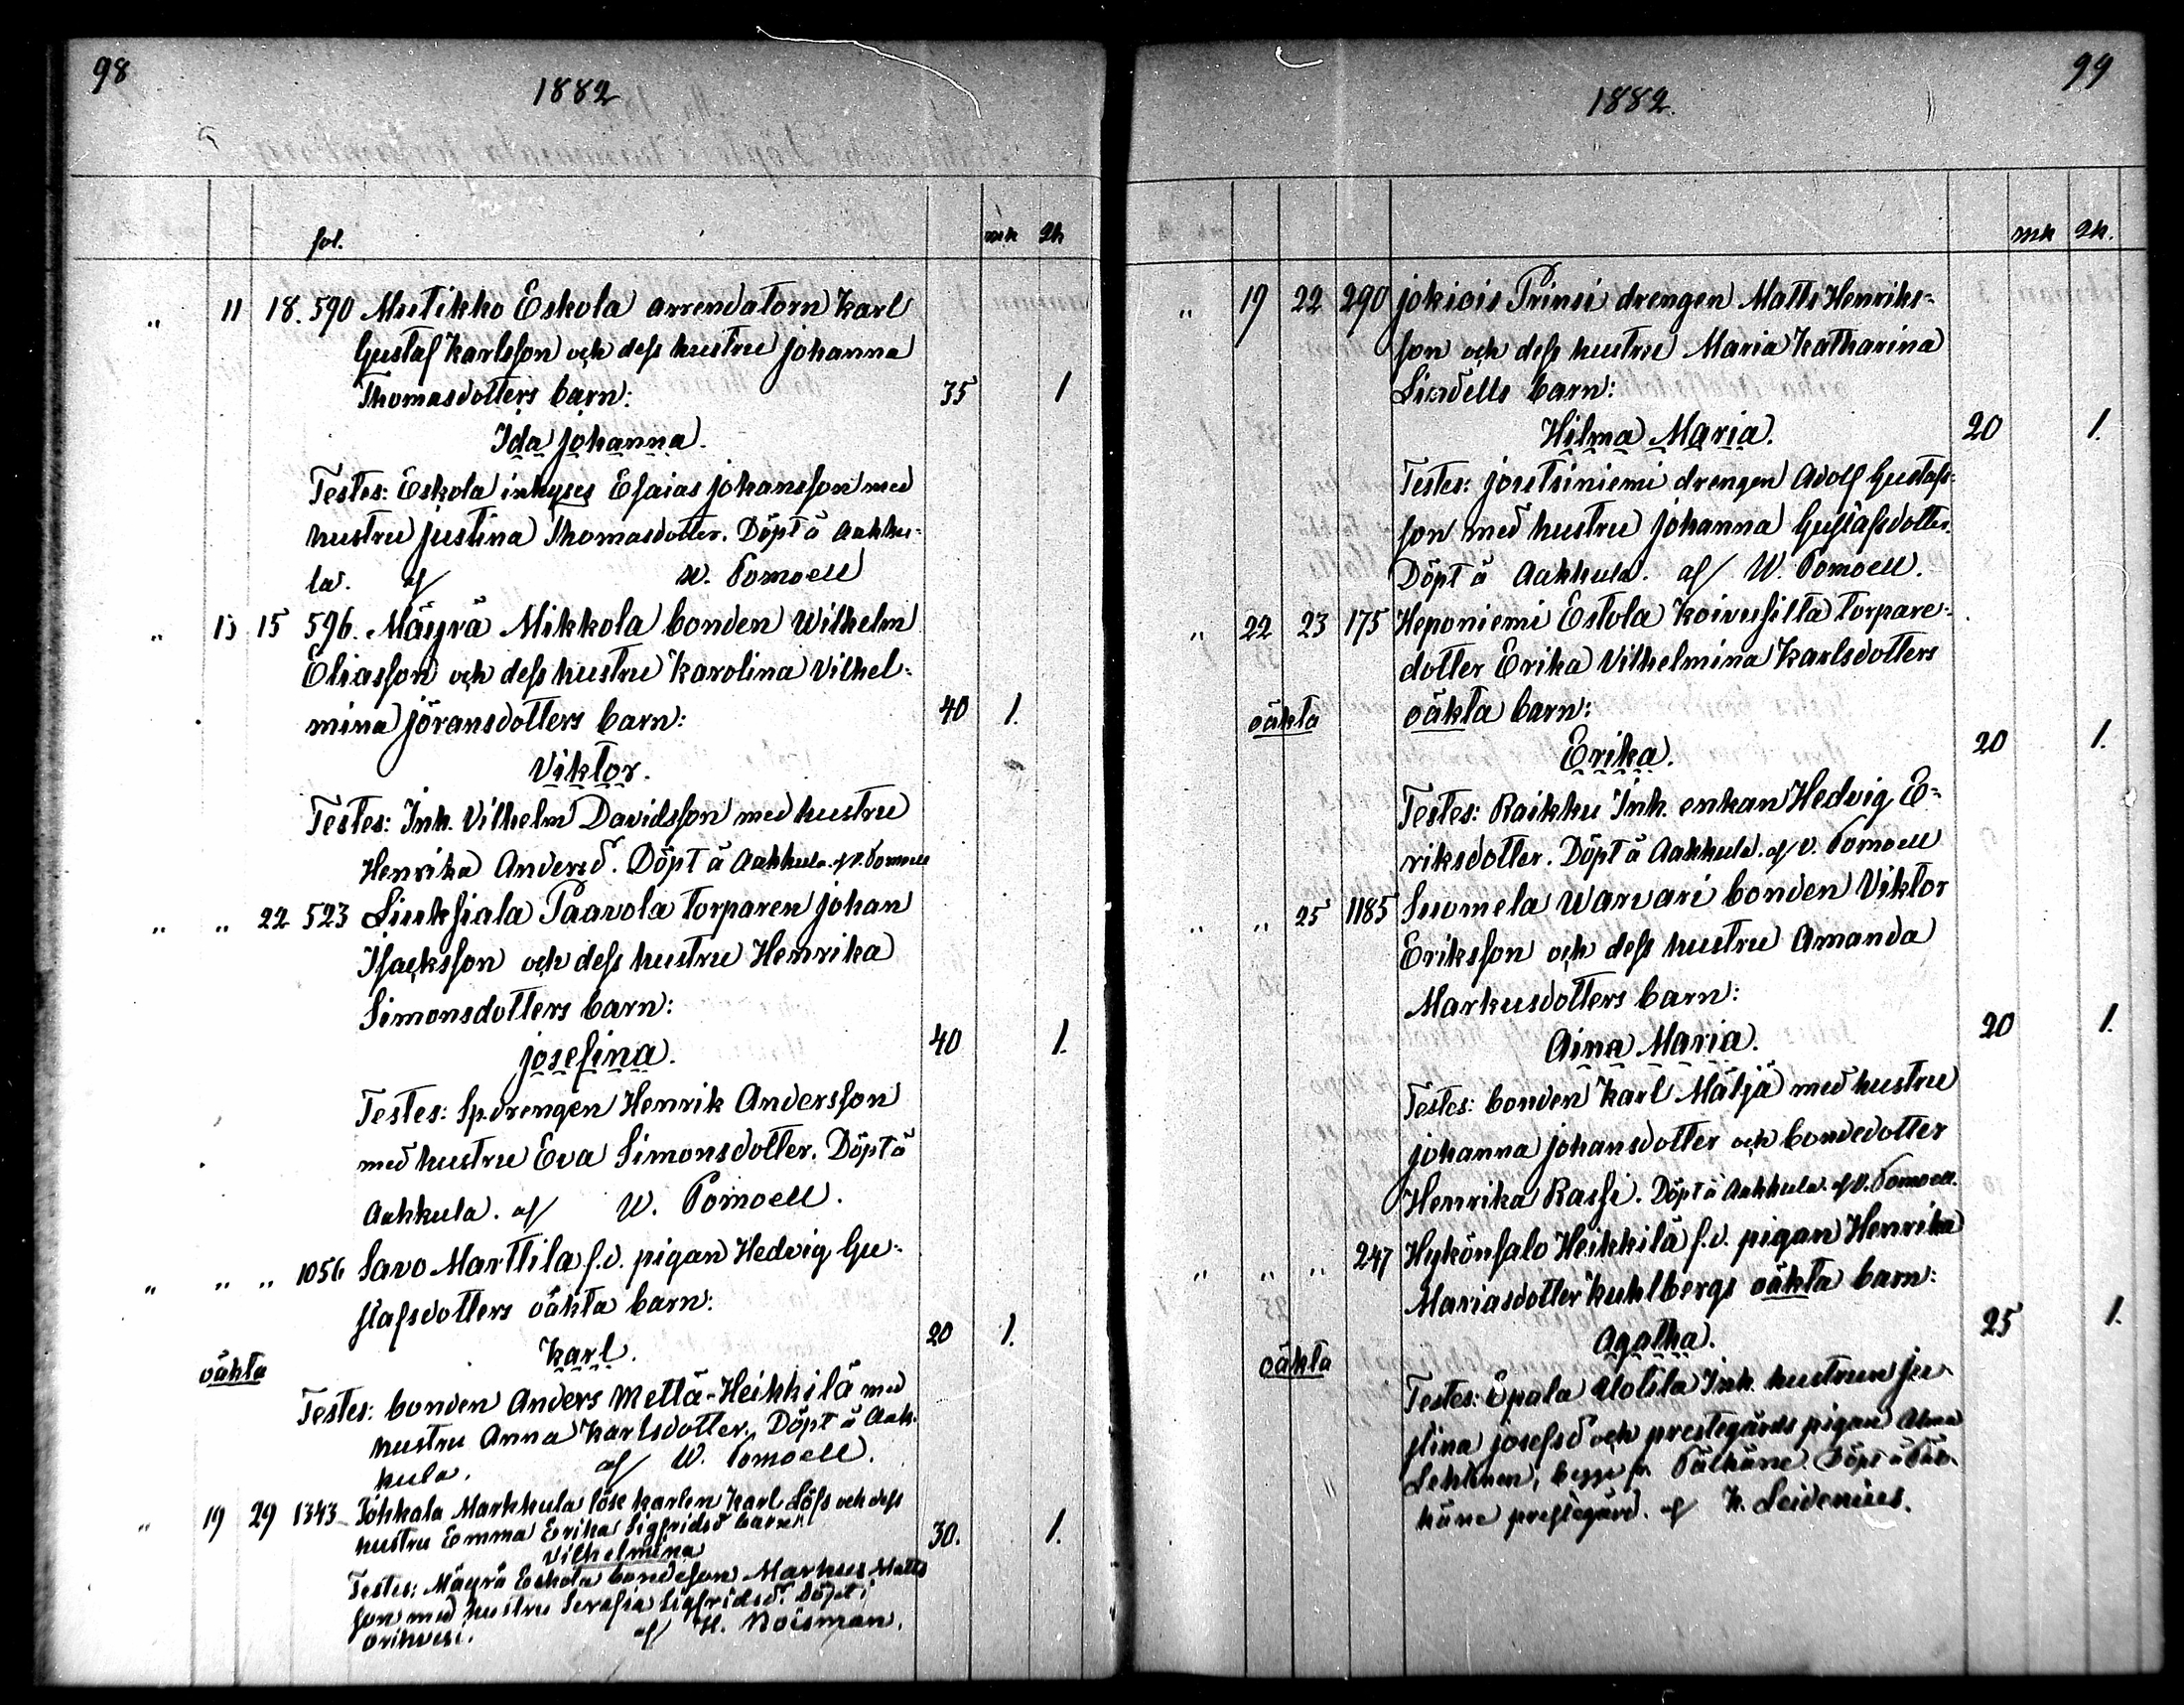 98
1882
fol. mk qk
" 11 18. 590 Mutikko Eskola arrendatorn Karl
Gustaf Karlsson och dess hustru Johanna
Thomasdotters barn: 35 1
Ida Johanna.
Testes: Eskola inhyses Esaias Johansson med
hustru Justina Thomasdotter. Döpt å Aakku-
la. af W. Pomoell
" 13 15 596. Mäyrä Mikkola bonden Wilhelm
Eliasson och dess hustru Karolina Vilhel-
mina Jöransdotters barn: 40 1.
Viktor.
Testes: Inh. Vilhelm Davidsson med hustru
Henrika Andersd. Döpt å Aakkula. af V. Pomoell
" " 22 523 Liuksiala Paavola torparen Johan
Isacksson och dess hustru Henrika
Simonsdotters barn:
Josefina. 40 1.
Testes: Spdrengen Henrik Andersson
med hustru Eva Simonsdotter. Döpt å
Aakkula. af W. Pomoell.
" " " 1056 Savo Marttila f.d. pigan Hedvig Gu-
stafsdotters oäkta barn:
Karl. 20 1.
oäkta
Testes: bonden Anders Mettä-Heikkilä med
hustru Anna Karlsdotter. Döpt å Aak-
kula. af W. Pomoell.
" 19 29 1343 Tohkala Markkula löse karlen Karl Löfs och dess
hustru Emma Erika Sigfridsd barn:
Vilhelmina 30. 1.
Testes: Mäyrä Eskola bondeson Markus Matts
son med hustru Serafia Sigfridsd. Döpt i
Orihvesi. af H. Roisman.
99
1882.
mk qk.
" 19 22 290 Jokiois Prinsi drengen Matts Henriks-
son och dess hustru Maria Katharina
Lindells barn:
Hilma Maria. 20 1.
Testes: Joutsiniemi drengen Adolf Gustafs-
son med hustru Johanna Gustafsdotter.
Döpt å Aakkula. af W. Pomoell.
" 22 23 175 Heponiemi Estola Koivusilta torpare-
dotter Erika Vilhelmina Karlsdotters
oäkta oäkta barn:
Erika. 20 1.
Testes: Raikku Inh. enkan Hedvig E-
riksdotter. Döpt å Aakkula. af V. Pomoell
" " 25 1185 Suomela Warvari bonden Viktor
Eriksson och dess hustru Amanda
Markusdotters barn:
Aina Maria. 20 1.
Testes: bonden Karl Mäljä med hustru
Johanna Johansdotter och bondedotter
Henrika Rassi. Döpt å Aakkula. af V. Pomoell.
" " " 247 Hykönsalo Heikkilä f.d. pigan Henrika
Mariasdotter Kuhlbergs oäkta barn:
Agatha. 25 1.
oäkta
Testes: Epala Uotila Inh. hustrun Ju
stina Josefsd och prestegårds pigan Alma
Lehtinen, begge fr Pälkäne. Döpt å Päl-
käne prestegård. af K. Leidenius.